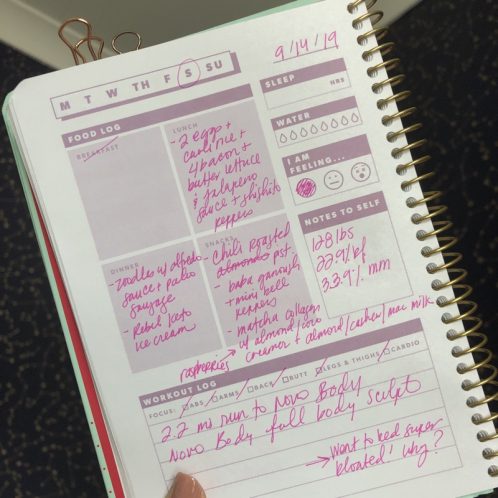 9/14/19
M T W TH F S SU
SLEEP
HRS
WATER
I AM
FEELING...
FOOD LOG
BREAKFAST
LUNCH
- 2 eggs +
cauli rice +
4 bacon +
butter lettuce
& jalapeno
sauce + shishito
peppers
DINNER
- zoodles w/ alfredo
sauce + paleo
sausage
- Rebel keto
ice cream
SNACKS
Chili roasted
almonds pst
- baba ganoush
+ mini bell
peppers
- matcha collagen
w/ almond/coco
creamer + almond/cashew/mac milk
raspberries
NOTES TO SELF
128 lbs
22.9% bf
33.9% mm
WORKOUT LOG
FOCUS: ABS ARMS BACK BUTT LEGS & THIGHS CARDIO
2.2 mi run to Novo Body
Novo Body full body sculpt
→ Went to bed super
bloated! Why?